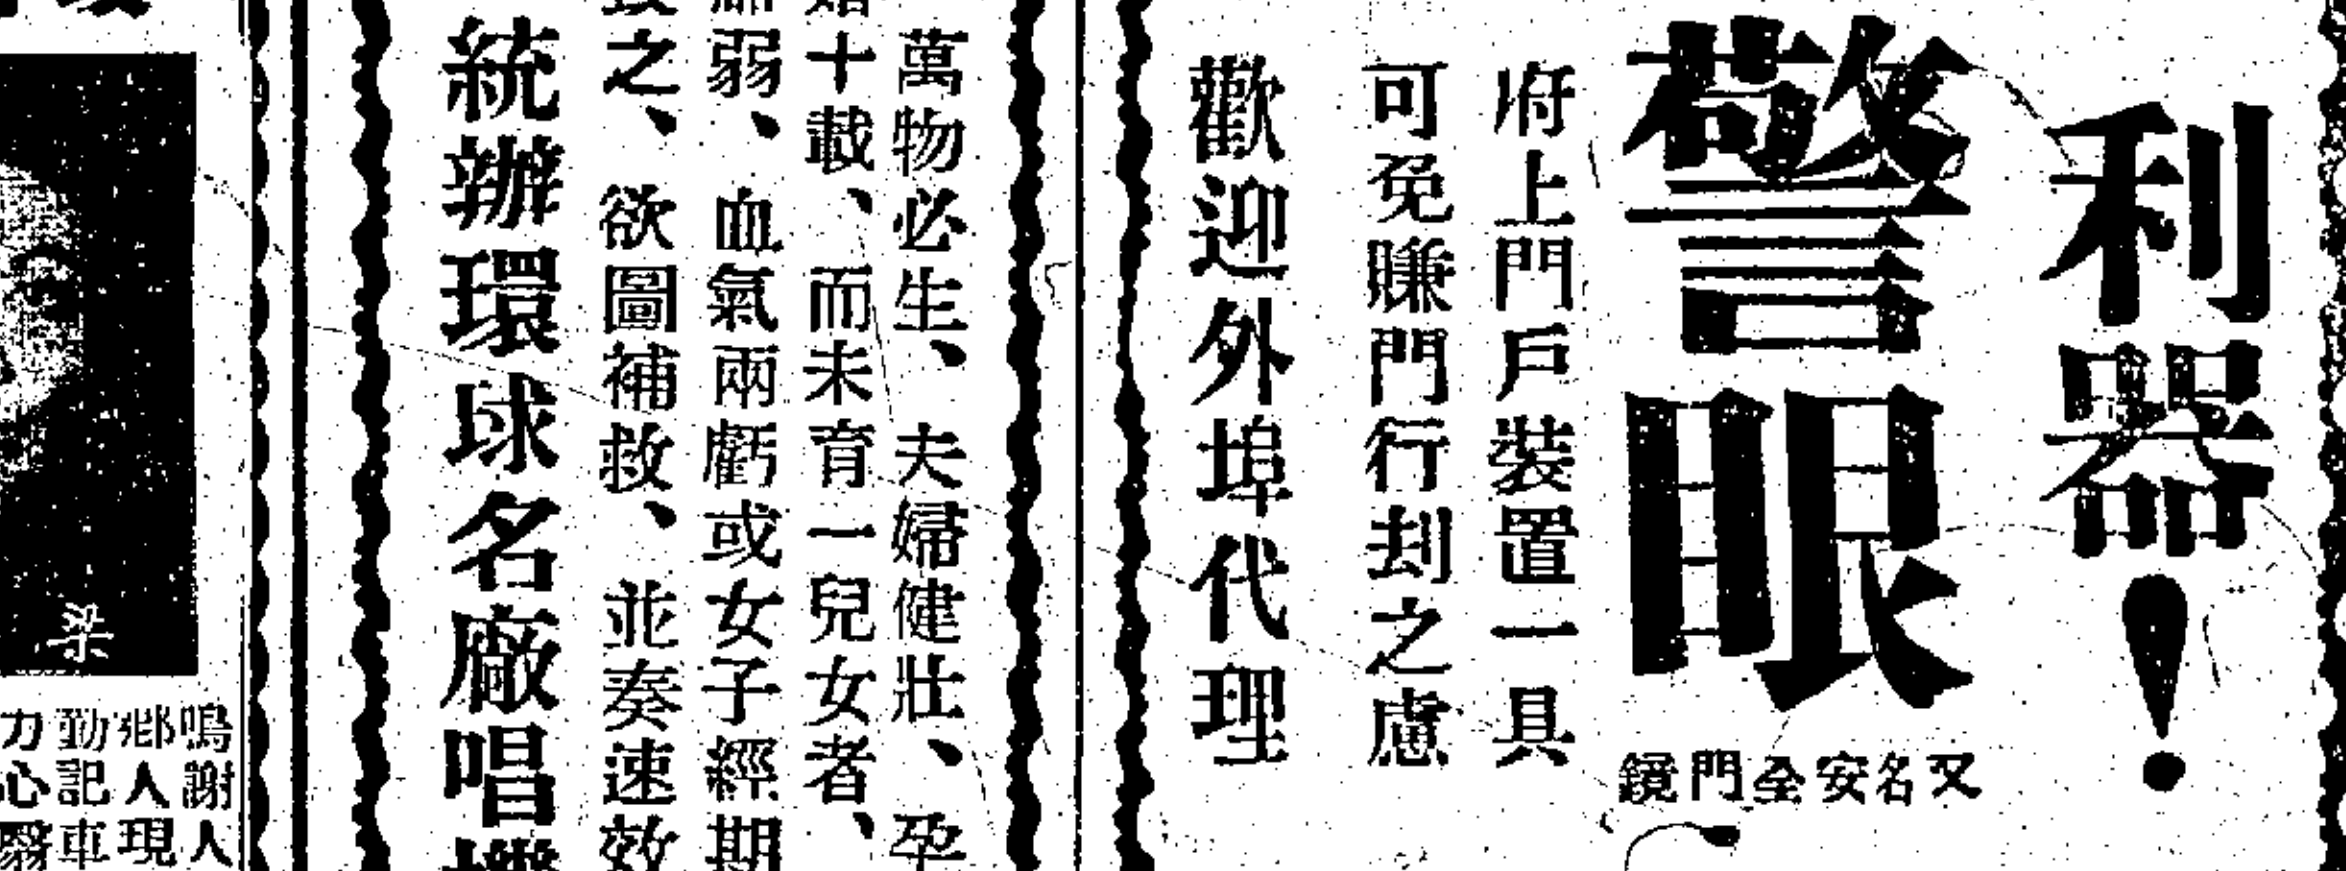 利器！
警眼
又名安全門鏡
府上門戶裝置一具
可免賺門行刦之慮
歡迎外埠代理
萬物必生、夫婦健壯、孕
十載、而未育一兒女者、
弱、血氣兩虧或女子經期
之、欲圖補救、並奏速效
統辦環球名廠唱機
梁
鳴謝人
鄉人現
勤記車
力心